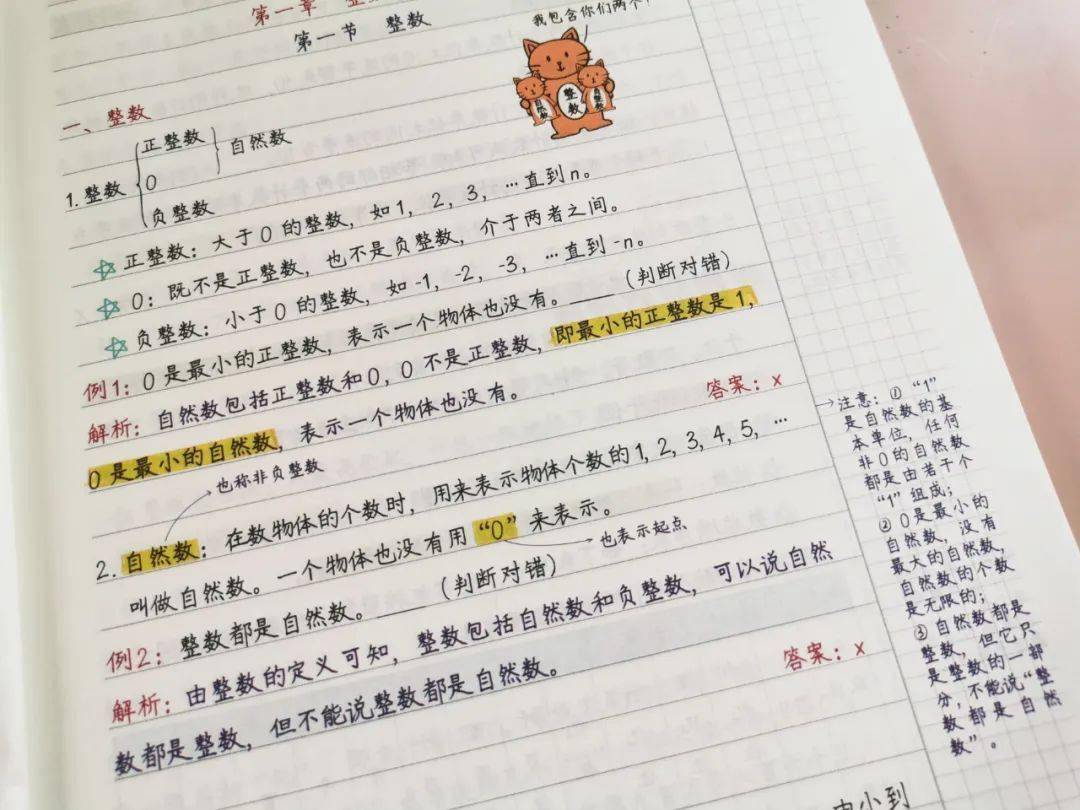 第一章 整
第一节 整数
我包含你们两个！
自然数
整数
一、整数
正整数
1.整数 0 自然数
负整数
☆正整数：大于0的整数，如1，2，3，…直到n。
☆0：既不是正整数，也不是负整数，介于两者之间。
☆负整数：小于0的整数，如-1，-2，-3，…直到-n。
例1：0是最小的正整数，表示一个物体也没有。____（判断对错）
解析：自然数包括正整数和0，0不是正整数，即最小的正整数是1，
0是最小的自然数，表示一个物体也没有。 答案：x
也称非负整数
2.自然数：在数物体的个数时，用来表示物体个数的1，2，3，4，5，…
叫做自然数。一个物体也没有用“0”来表示。
也表示起点
例2：整数都是自然数。____（判断对错）
解析：由整数的定义可知，整数包括自然数和负整数，可以说自然
数都是整数，但不能说整数都是自然数。 答案：x
→注意：①“1”
是自然数的基
本单位，任何
非0的自然数
都是由若干个
“1”组成；
②0是最小的
自然数，没有
最大的自然数，
自然数的个数
是无限的；
③自然数都是
整数，但它只
是整数的一部
分，不能说“整
数都是自然
数”。
由小到